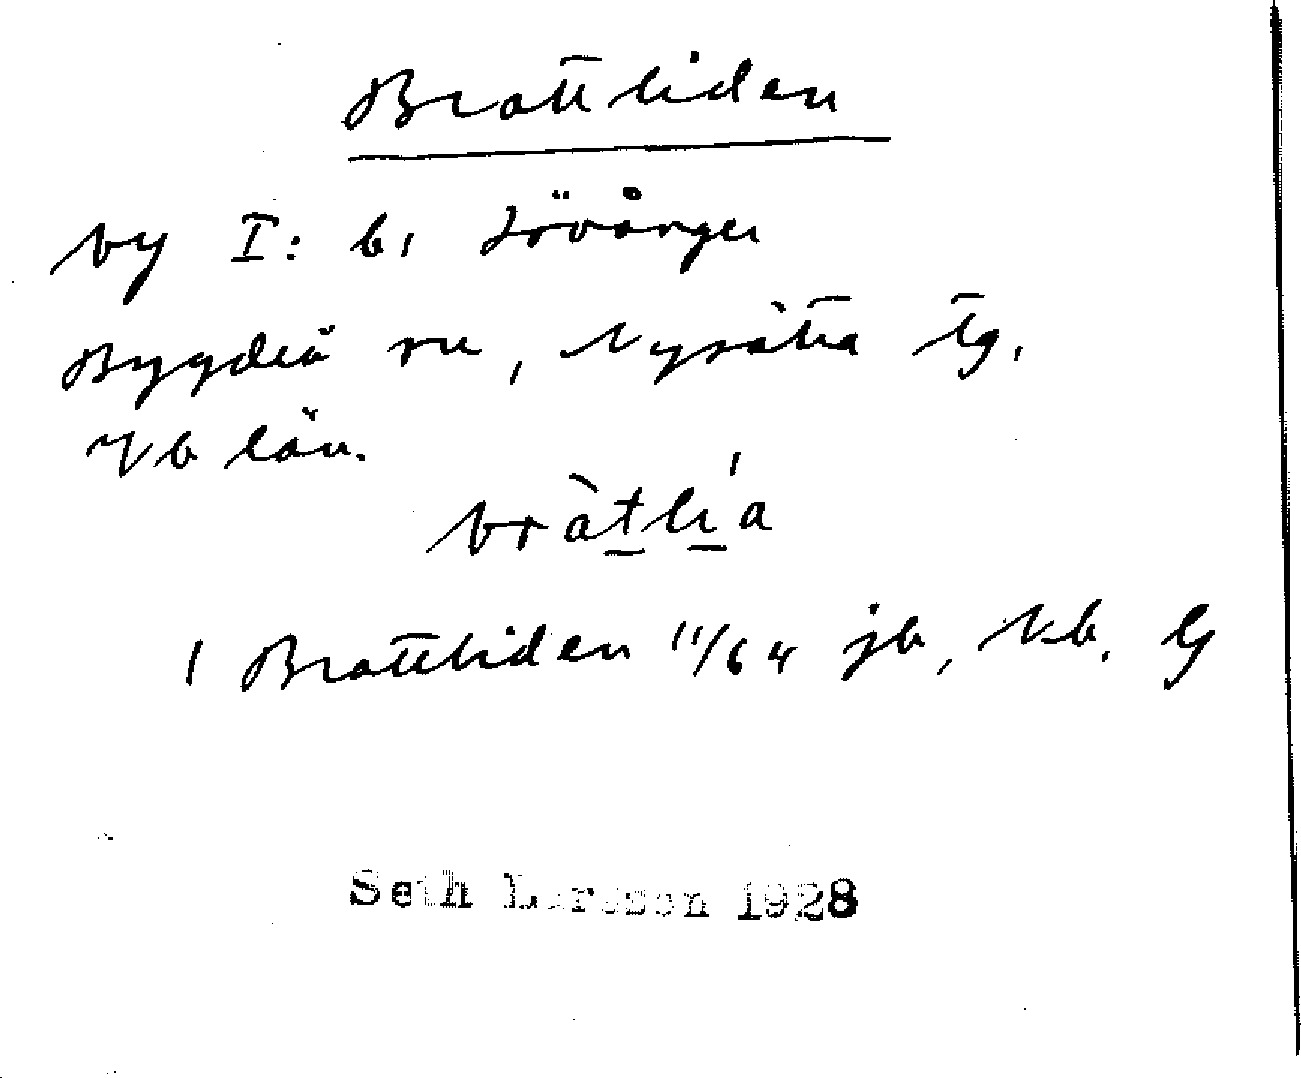 Brattliden
by I: b, Lövånger
Bygdeå sn, Nysätra tg.
Vb län.
bràtlía
1 Brattliden 11/64 jb, kb.
Seth Larsson 1928